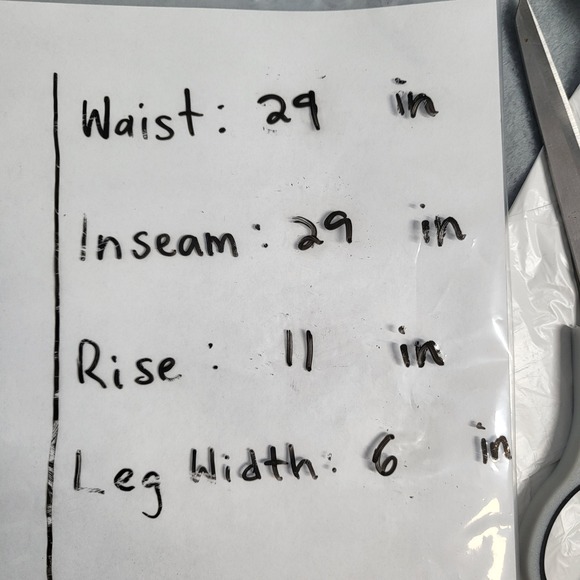 Waist: 29 in
Inseam: 29 in
Rise: 11 in
Leg Width: 6 in